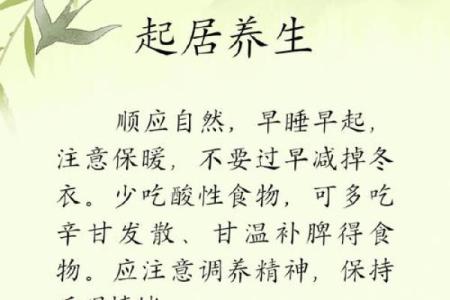 起居养生
顺应自然，早睡早起，
注意保暖，不要过早减掉冬
衣。少吃酸性食物，可多吃
辛甘发散、甘温补脾得食
物。应注意调养精神，保持